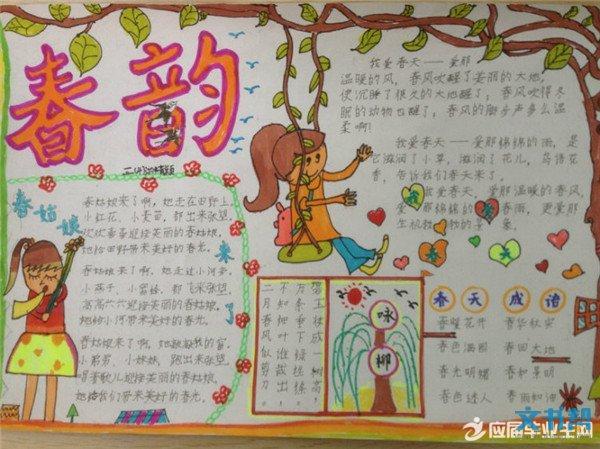 春韵
春姑娘
来了
春姑娘来了啊，她走在田野上。
小红花、小麦苗，都出来张望。
欢欢喜喜迎接美丽的春姑娘。
她给田野带来美好的春光。
春姑娘来了啊，她走过小河旁。
小燕子、小蜜蜂，都飞来张望。
迎接美丽的春姑娘。
她给小河带来美好的春光。
春姑娘来了啊，她
小哥哥、小妹妹，跑出来张望。
唱着歌儿迎接美丽的春姑娘。
她给我们带来美好的春光。
我爱春天——爱那
温暖的风，春风吹醒了美丽的大地，
使沉睡了很久的大地醒了；春风吹得冬
眠的动物也醒了；春风的脚步声多么温
柔啊！
我爱春天——爱那绵绵的雨，是
它滋润了小草，滋润了花儿，鸟语花
香，告诉我们春天来了。
我爱春天，爱那温暖的春风，
爱绵绵的春雨，更爱那
生机的景象。
碧玉妆成一树高
万条垂下绿丝绦
不知细叶谁裁出
二月春风似剪刀
咏柳
春天成语
春暖花开 春华秋实
春色满园 春回大地
春光明媚 春和景明
春色迷人 春雨如油
应届毕业生网